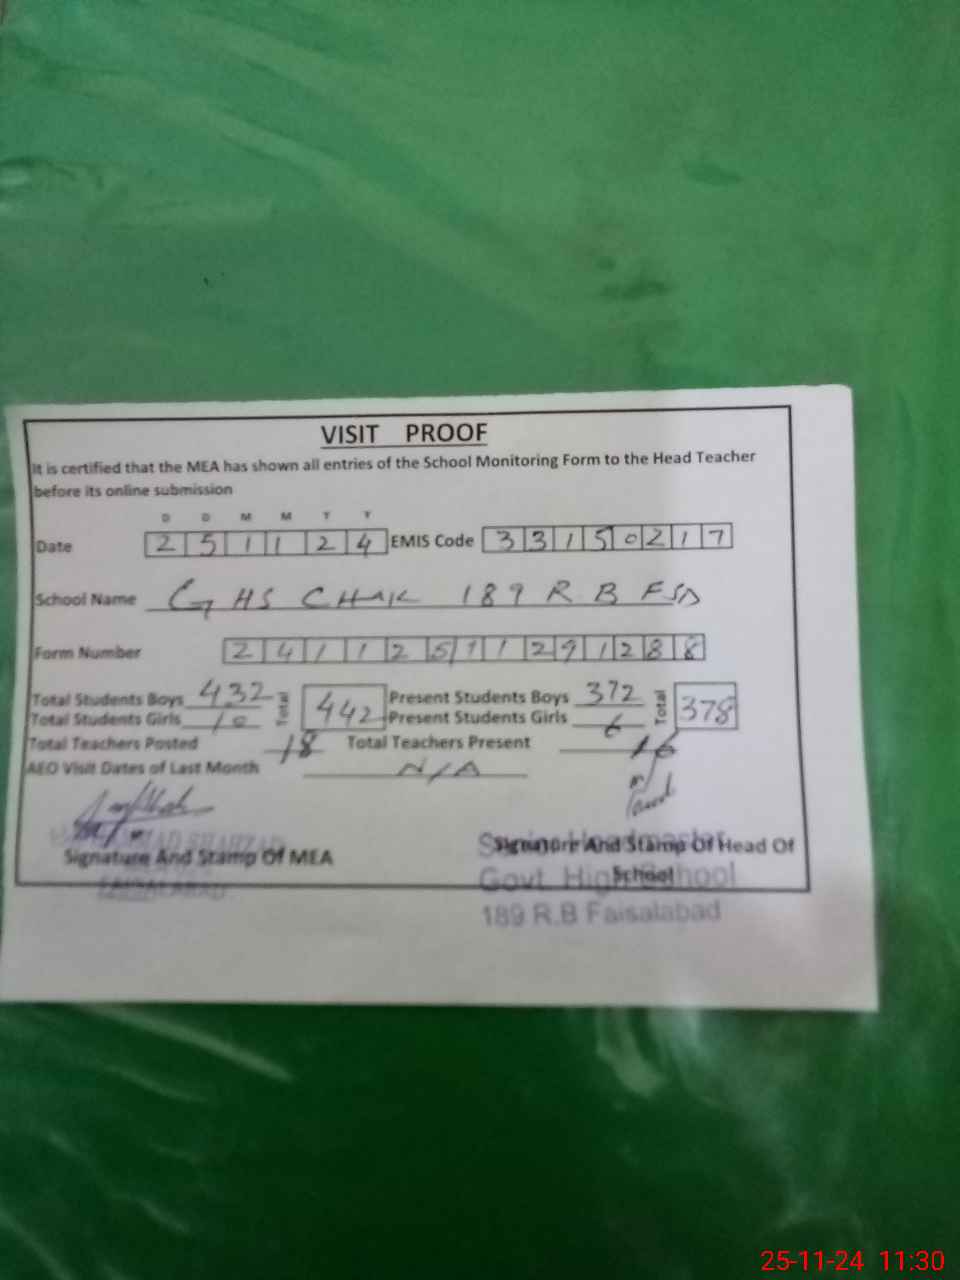 VISIT PROOF
It is certified that the MEA has shown all entries of the School Monitoring Form to the Head Teacher
before its online submission
D D M M Y Y
Date 2 5 1 1 2 4 EMIS Code 3 3 1 5 0 2 1 7
School Name GHS CHAK 189 R.B FSD
Form Number 2 4 1 1 2 5 1 1 2 9 1 2 8 8
Total Students Boys 432 Total 442 Present Students Boys 372 Total 378
Total Students Girls 10 Present Students Girls 6
Total Teachers Posted 18 Total Teachers Present 16
AEO Visit Dates of Last Month N/A
Signature And Stamp Of MEA
FAISALABAD
Senior Headmaster
Signature And Stamp Of Head Of
School
Govt. High School
189 R.B Faisalabad
25-11-24 11:30